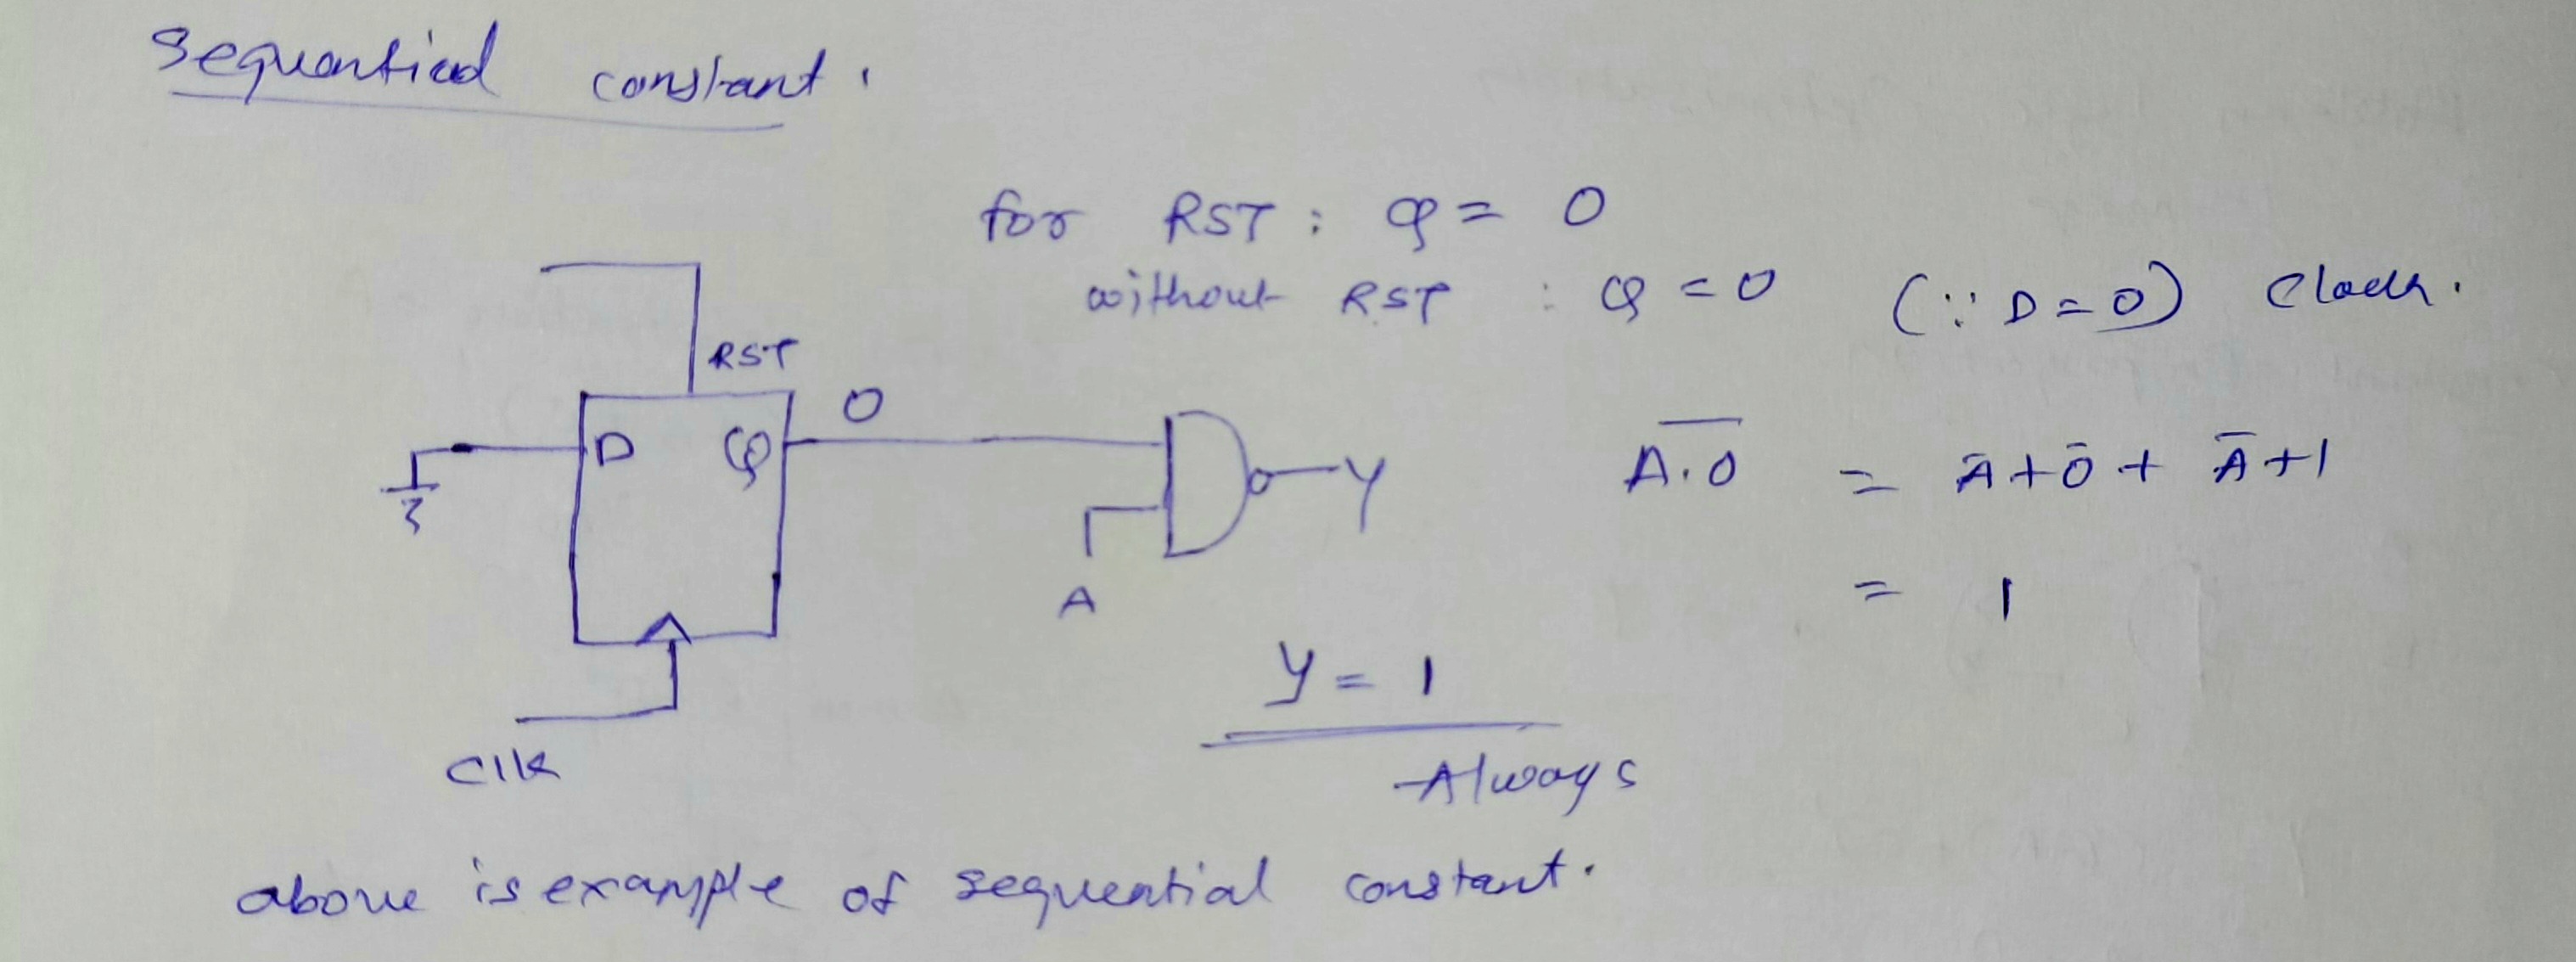 Sequential constant.
for RST : Q = 0
without RST : Q = 0 (∵ D = 0) clock.
RST
0
D Q
Y
A
A̅.̅0̅ = A̅ + 0̅ + A̅ + 1
= 1
Y = 1
Always
Clk
above is example of sequential constant.